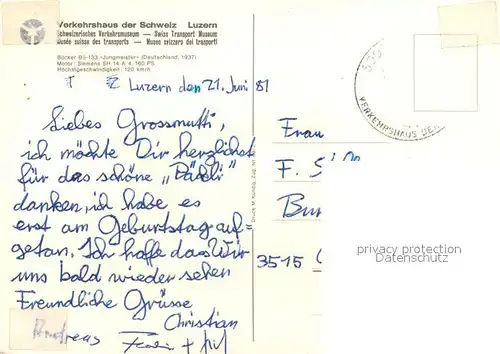 Verkehrshaus der Schweiz Luzern
Schweizerisches Verkehrsmuseum — Swiss Transport Museum
Musée suisse des transports — Museo svizzero dei trasporti
Bücker Bü-133 «Jungmeister» (Deutschland, 1937)
Motor: Siemens SH 14 A 4, 160 PS
Höchstgeschwindigkeit: 220 km/h
Luzern den 21. Juni 81
Liebes Grossmutti,
ich möchte Dir herzlichst
für das schöne „Päckli"
danken, ich habe es
erst am Geburtstag auf-
getan. Ich hoffe das Wir
uns bald wieder sehen
Freundliche Grüsse
Christian
Andreas
Druck: M. Kündig, Zug
Frau
F.
3515
VERKEHRSHAUS DER
privacy protection
Datenschutz